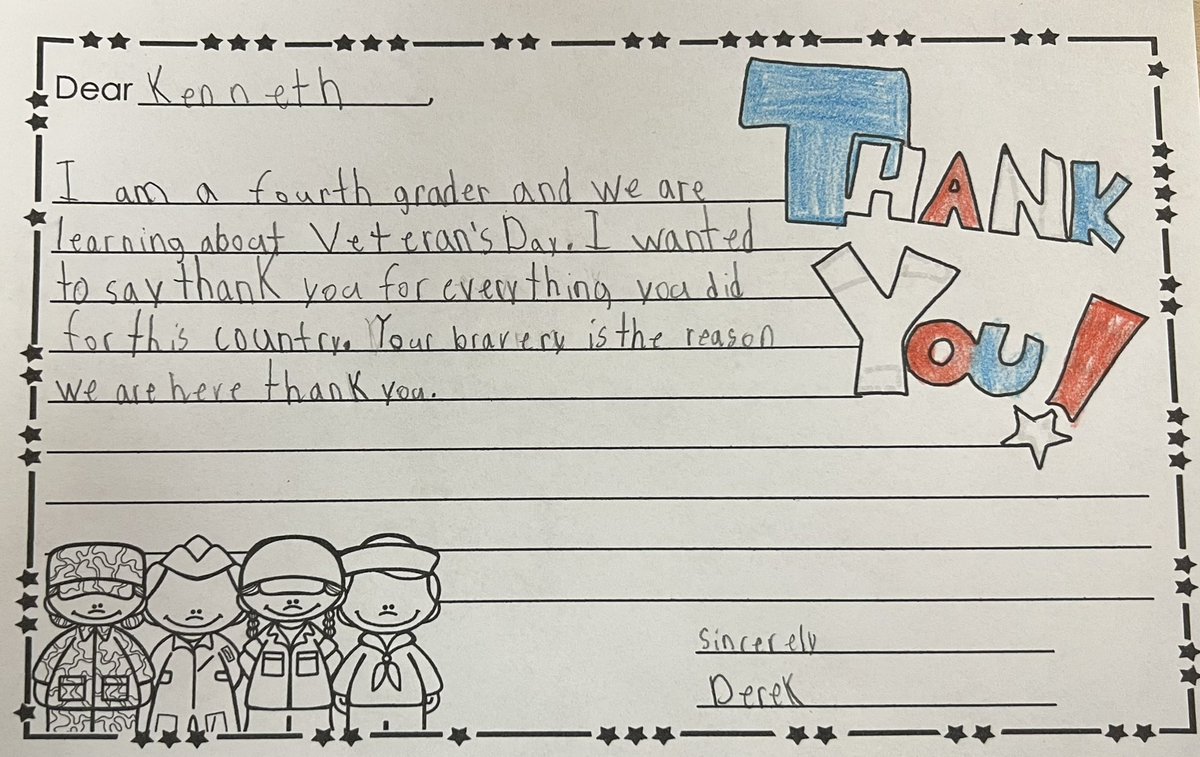 Dear Kenneth,
THANK
YOU!
I am a fourth grader and we are
learning about Veteran's Day. I wanted
to say thank you for everything you did
for this country. Your bravery is the reason
we are here thank you.
sincerely
Derek